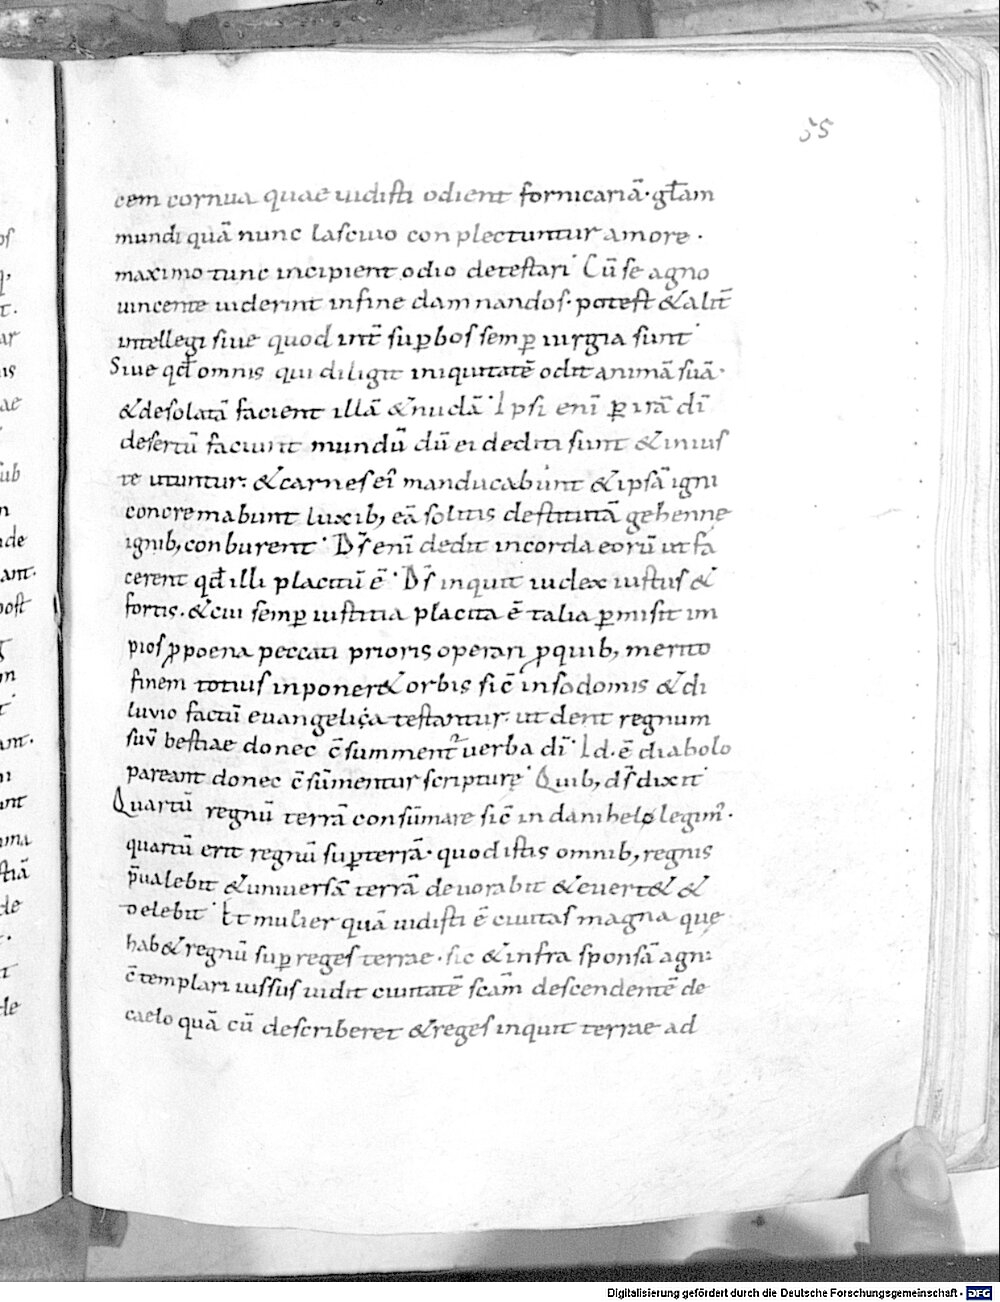 55
cem cornua quae uidisti odient fornicariā· gl̄am
mundi quā nunc lasciuo conplectuntur amore·
maximo tunc incipient odio detestari· Cū se agno
uincente uiderint in fine damnandos· potest & alit̄
intellegi siue quod int̄ sup̄bos semp̄ iurgia sunt·
Siue qd̄ omnis qui diligit iniquitatē odit animā suā·
& desolatā facient illā & nudā· Ipsi enī p̄ irā dī
desertū faciunt mundū dū ei dediti sunt & inius
te utuntur· & carnes eī manducabunt & ipsā igni
concremabunt luxib; eā solitis destitutā gehenne
ignib; conburent· Ds̄ enī dedit in corda eorū ut fa
cerent qd̄ illi placitū ē· Ds̄ inquit iudex iustus &
fortis· & cui semp̄ iustitia placita ē talia p̄misit im
pios ꝓ poena peccati prioris operari ꝓ quib; merito
finem totius inponer& orbis sic̄ in sodomis & di
luvio factū euangelica testantur· ut dent regnum
suū bestiae donec c̄summent᷑ uerba dī· Id· ē diabolo
pareant donec c̄sūmentur scripturę· Quib; ds̄ dixit·
Quartū regnū terrā consūmare sic̄ in danihelo legim᷑·
quartū erit regnū sup̄ terrā· quod istis omnib; regnis
p̄ualebit & uniuersā terrā deuorabit & euert& &
delebit· Et mulier quā uidisti ē ciuitas magna quę
hab& regnū sup̄ reges terrae· sic & infra sponsā agni
c̄templari iussus uidit ciuitatē sc̄am descendentē de
caelo quā cū describeret & reges inquit terrae ad
Digitalisierung gefördert durch die Deutsche Forschungsgemeinschaft - DFG